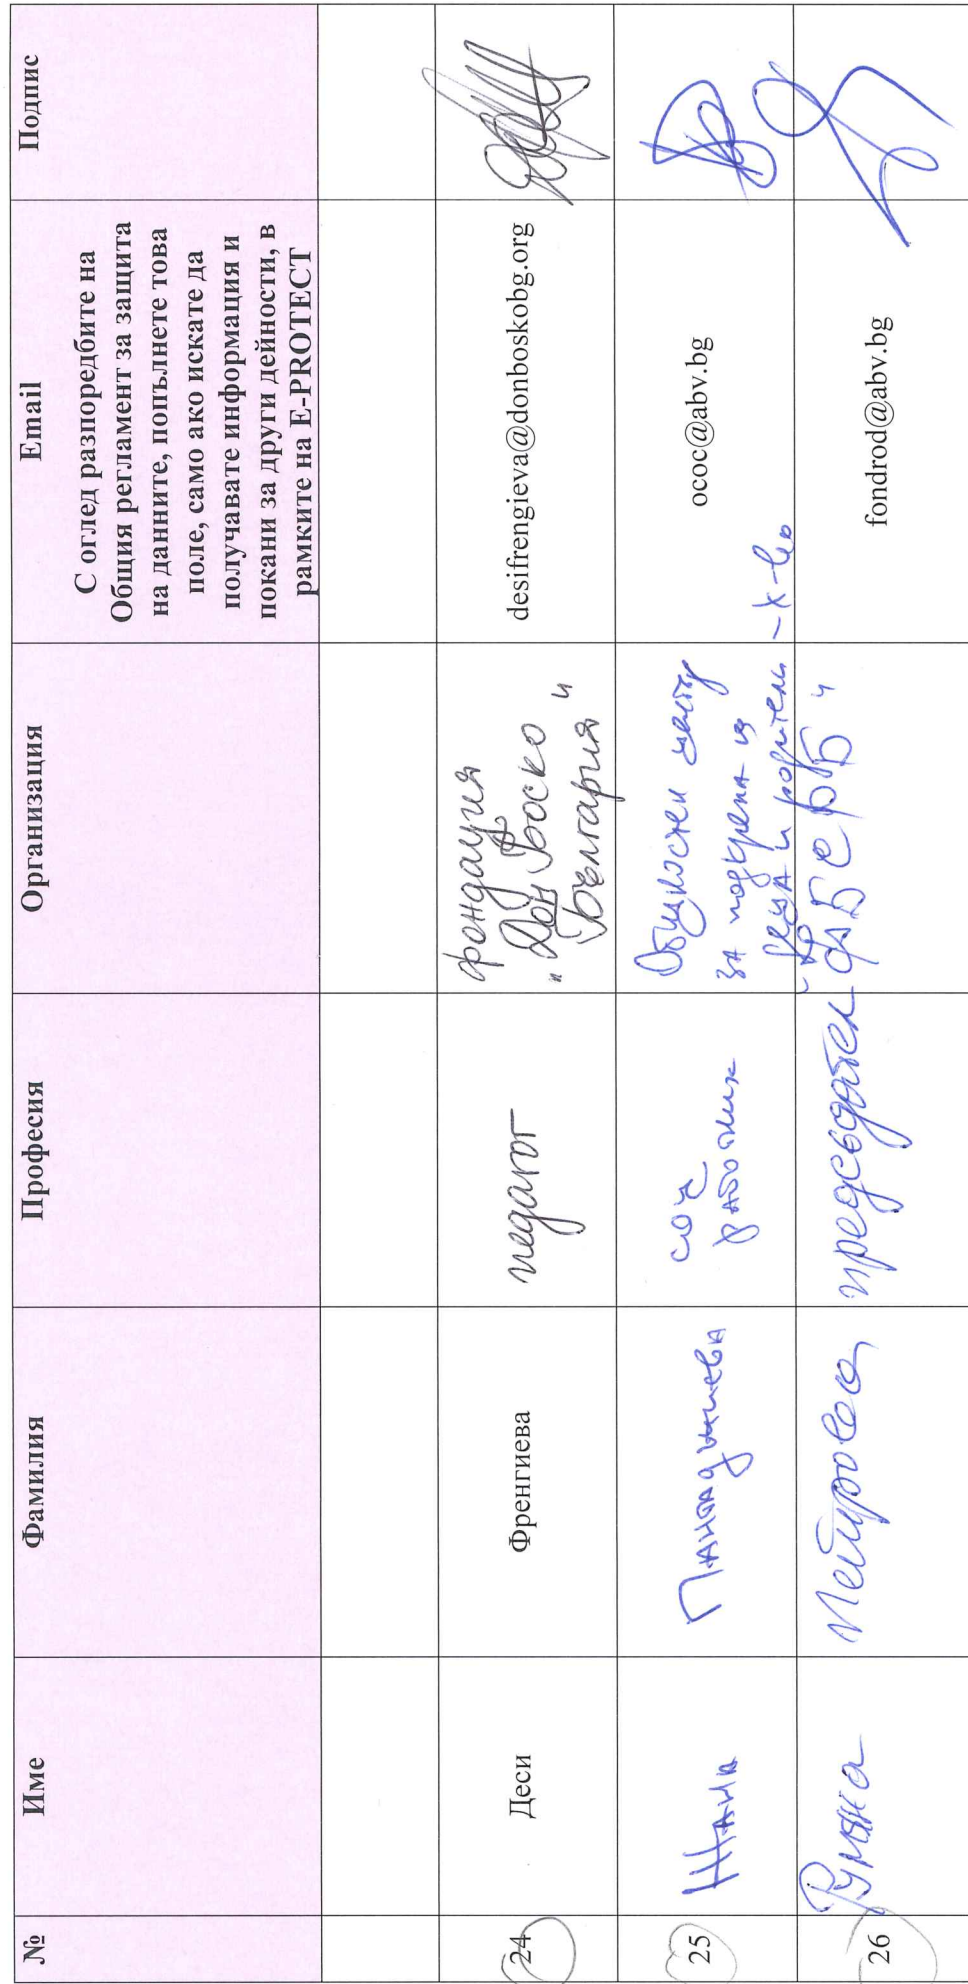 № Име Фамилия Професия Организация Email Подпис
С оглед разпоредбите на
Общия регламент за защита
на данните, попълнете това
поле, само ако искате да
получавате информация и
покани за други дейности, в
рамките на E-PROTECT
24 Деси Френгиева педагог фондация
„Дон Боско
България“
desifrengieva@donboskobg.org
25 Жана соц
работник
Обществен център
за подкрепа на
деца и родители – х-во
ococ@abv.bg
26 Румяна Петрова председател
fondrod@abv.bg